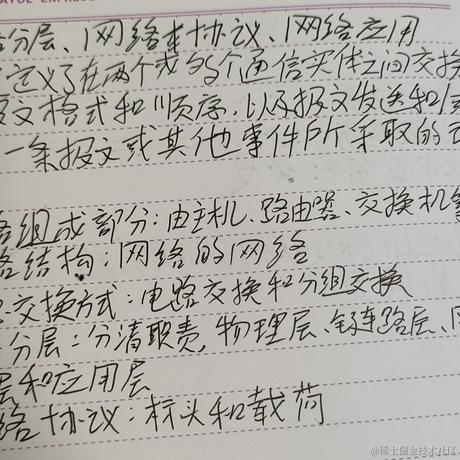 分层、网络协议、网络应用
定义了在两个或多个通信实体之间交换
文格式和顺序，以及报文发送和
一条报文或其他事件所采取的
络组成部分：由主机、路由器、交换机
络结构：网络的网络
交换方式：电路交换和分组交换
分层：分清职责，物理层、链路层、
层和应用层
络协议：标头和载荷
@稀土掘金技术社区